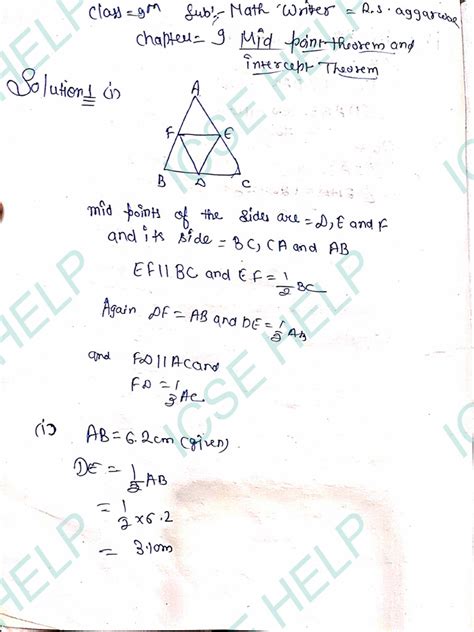 Class = 9th Sub:- Math Writer = R.S. aggarwal
chapter = 9 Mid point theorem and
intercept Theorem
Solution 1 (i)
A
F E
B D C
mid points of the sides are = D, E and F
and its side = BC, CA and AB
EF || BC and EF = 1/2 BC
Again DF = AB and DE = 1/2 AB
and FD || AC and
FD = 1/2 AC
(i) AB = 6.2cm (given)
DE = 1/2 AB
= 1/2 x 6.2
= 3.1cm
ICSE HELP
ICSE HELP
ICSE HELP
ICSE HELP
HELP
HELP